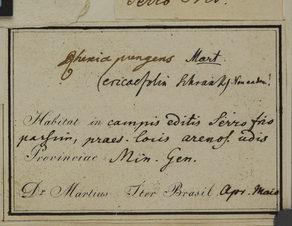 Serro Frio.
pungens Mart.
(ericaefolia Schrank
Habitat in campis editis Serro frio
passim, praes. locis arenos. udis
Provinciae Min. Gen.
Dr. Martius Iter Brasil Apr. Maio